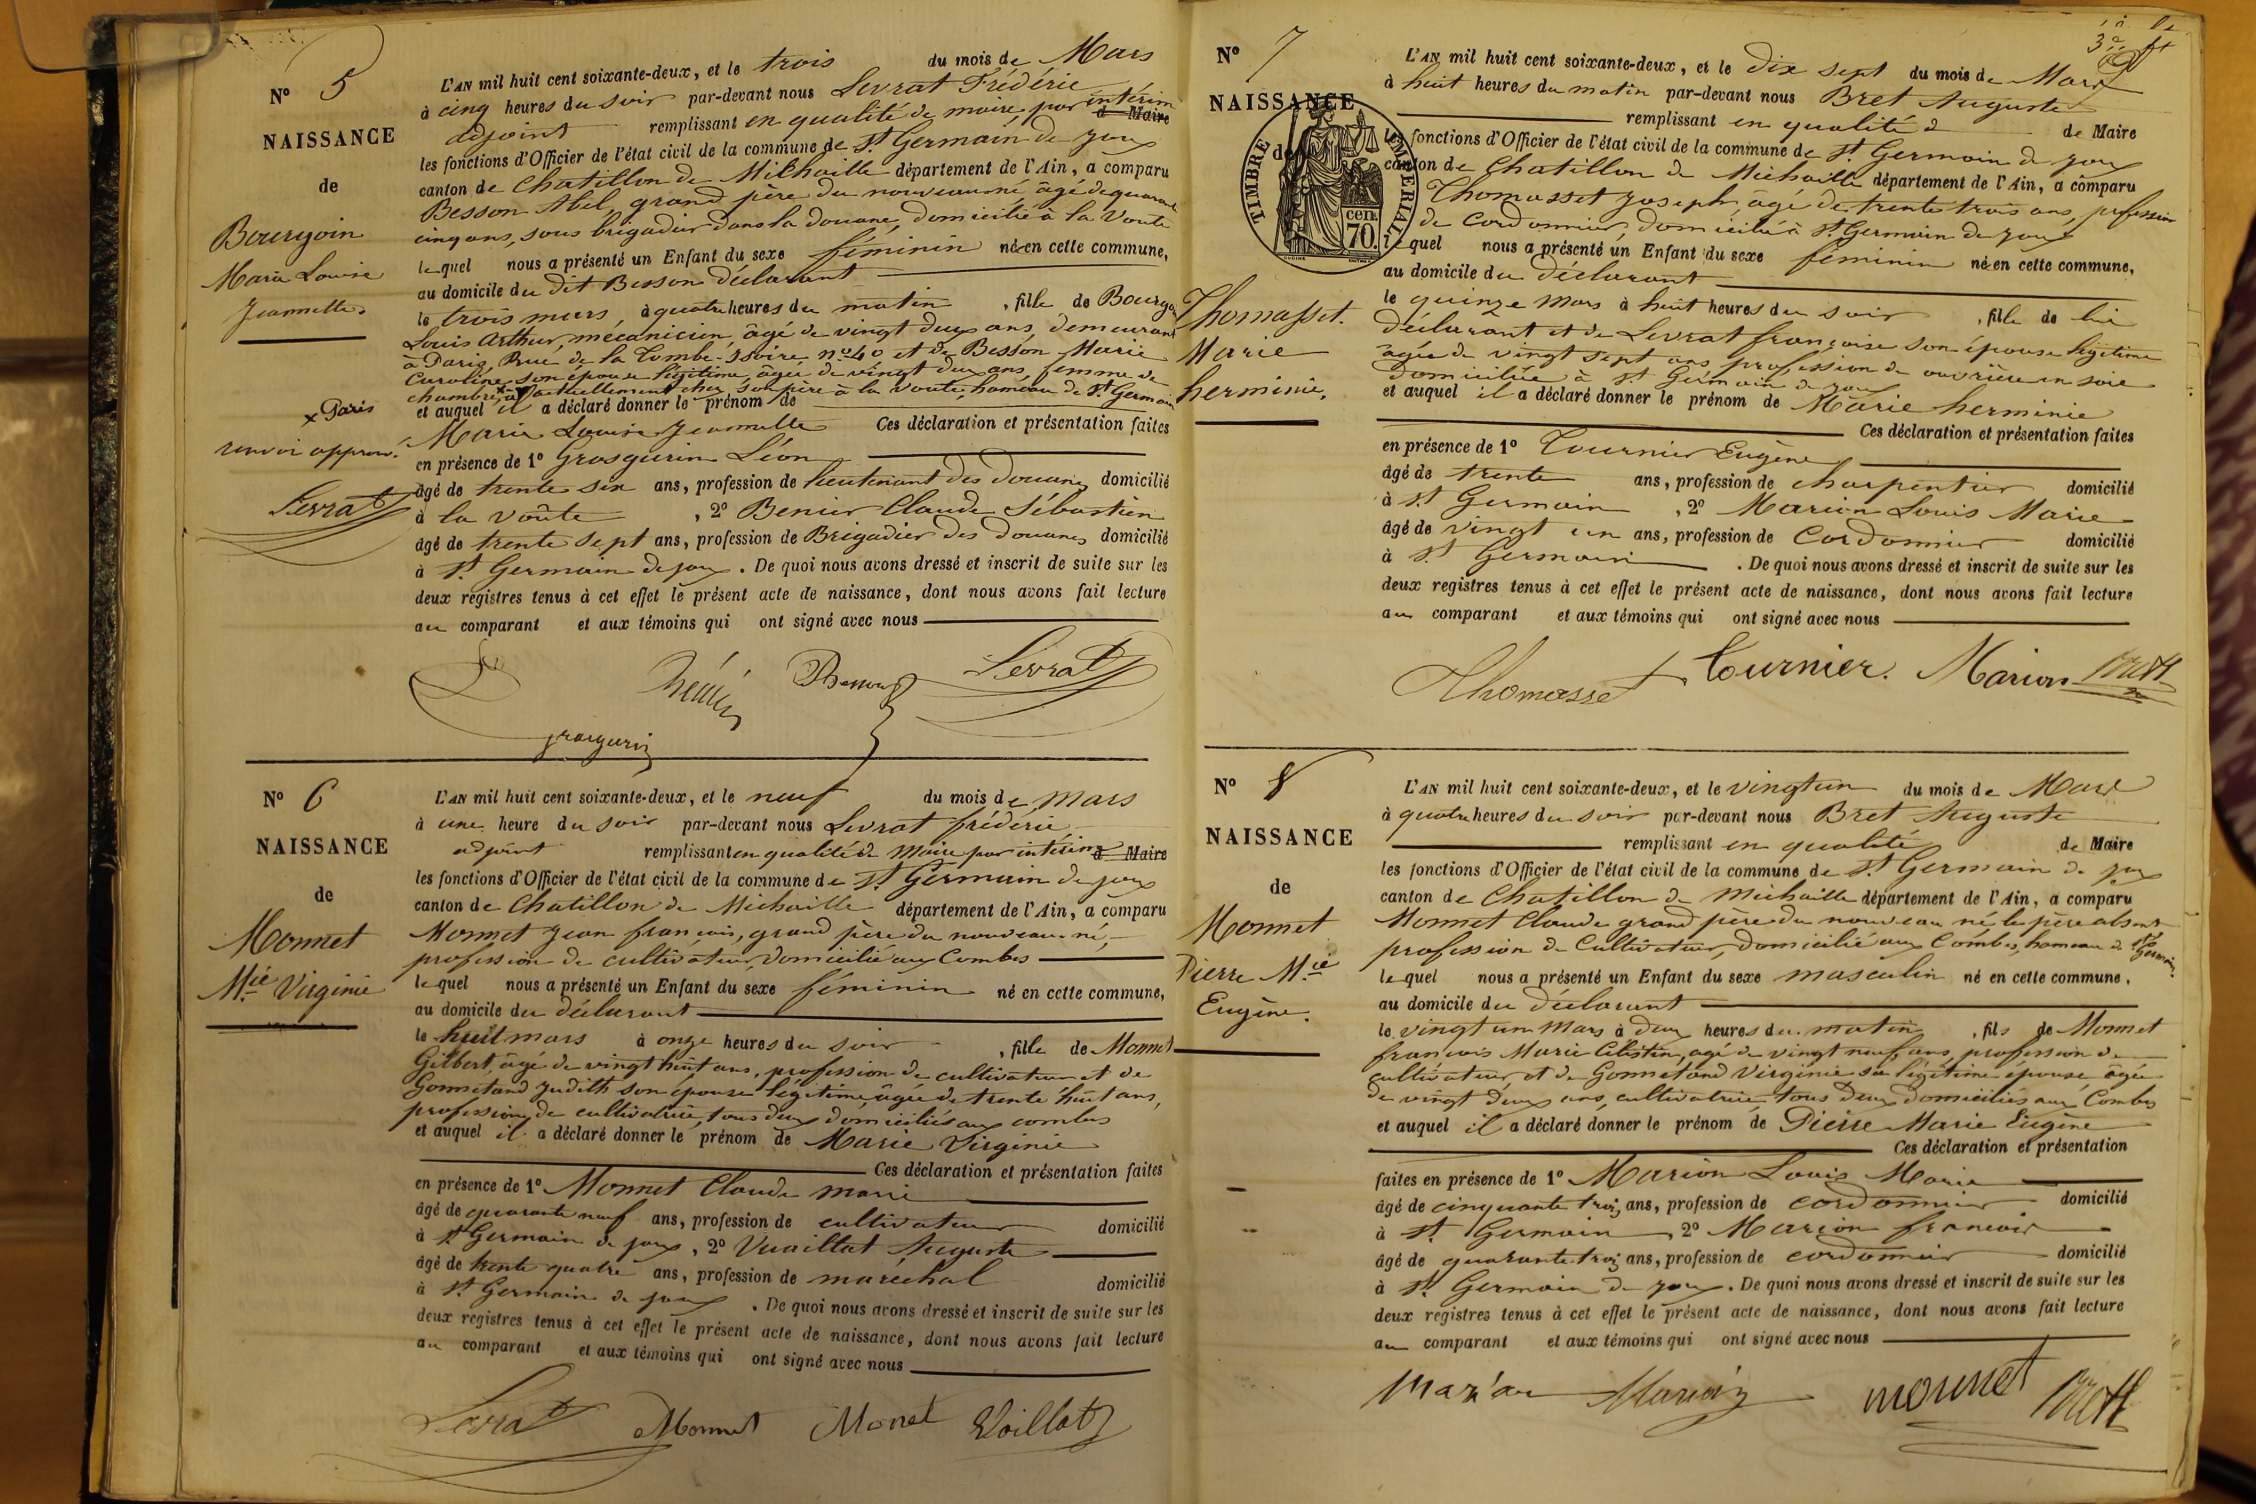 N° 5
NAISSANCE
de
Bourgoin
Marie Louise
Jeannette
L'AN mil huit cent soixante-deux, et le trois du mois de Mars
à cinq heures du soir par-devant nous Levrat Frédéric
adjoint remplissant en qualité de maire par intérim d Maire
les fonctions d'Officier de l'état civil de la commune de St Germain de joux
canton de Chatillon de Michaille département de l'Ain, a comparu
Besson Abel grand père du nouveau né âgé de quarante
cinq ans, sous brigadier dans la douane, domicilié à la Voute
lequel nous a présenté un Enfant du sexe féminin né en cette commune,
au domicile du dit Besson déclarant
le trois mars, à quatre heures du matin, fille de Bourgoin
Louis Arthur, mécanicien, âgé de vingt deux ans, demeurant
à Paris, Rue de la Tombe-Issoire n° 40 et de Besson Marie
Caroline son épouse légitime âgée de vingt deux ans, femme de
chambre, à x actuellement chez son père à la Voute, hameau de St Germain
et auquel il a déclaré donner le prénom de
Marie Louise Jeannette Ces déclaration et présentation faites
x Paris
renvoi approuvé
Levrat
en présence de 1° Grosgurin Léon
âgé de trente six ans, profession de lieutenant des douanes domicilié
à la Voûte, 2° Benier Claude Sébastien
âgé de trente sept ans, profession de Brigadier des douanes domicilié
à St Germain de joux. De quoi nous avons dressé et inscrit de suite sur les
deux registres tenus à cet effet le présent acte de naissance, dont nous avons fait lecture
au comparant et aux témoins qui ont signé avec nous
Besson Levrat
Grosgurin
N° 6
NAISSANCE
de
Monnet
Mie Virginie
L'AN mil huit cent soixante-deux, et le neuf du mois de mars
à une heure du soir par-devant nous Levrat frédéric
adjoint remplissant en qualité de Maire par intérim d Maire
les fonctions d'Officier de l'état civil de la commune de St Germain de joux
canton de Chatillon de Michaille département de l'Ain, a comparu
Monnet Jean françois, grand père du nouveau né,
profession de cultivateur, domicilié aux Combes
lequel nous a présenté un Enfant du sexe féminin né en cette commune,
au domicile du déclarant
le huit mars à onze heures du soir, fille de Monnet
Gilbert, âgé de vingt huit ans, profession de cultivateur et de
Gonnetand Judith son épouse légitime, âgée de trente huit ans,
profession de cultivatrice, tous deux domiciliés aux combes
et auquel il a déclaré donner le prénom de Marie Virginie
Ces déclaration et présentation faites
en présence de 1° Monnet Claude marie
âgé de quarante neuf ans, profession de cultivateur domicilié
à St Germain de joux, 2° Vuaillat Auguste
âgé de trente quatre ans, profession de maréchal domicilié
à St Germain de joux. De quoi nous avons dressé et inscrit de suite sur les
deux registres tenus à cet effet le présent acte de naissance, dont nous avons fait lecture
au comparant et aux témoins qui ont signé avec nous
Levrat Monnet Monet Voillat
N° 7
NAISSANCE
de
TIMBRE IMPERIAL
70 cen.
Thomasset.
Marie
herminie,
L'AN mil huit cent soixante-deux, et le dix sept du mois de Mars
à huit heures du matin par-devant nous Bret Auguste
remplissant en qualité d de Maire
les fonctions d'Officier de l'état civil de la commune de St Germain de joux
canton de Chatillon de Michaille département de l'Ain, a comparu
Thomasset Joseph, âgé de trente trois ans, profession
de cordonnier, domicilié à St Germain de joux
lequel nous a présenté un Enfant du sexe féminin né en cette commune,
au domicile du déclarant
le quinze Mars à huit heures du soir, fille de lui
déclarant et de Levrat françoise son épouse légitime
âgée de vingt sept ans profession de ouvrière en soie
domiciliée à St Germain de joux
et auquel il a déclaré donner le prénom de Marie herminie
Ces déclaration et présentation faites
en présence de 1° Tournier Eugène
âgé de trente ans, profession de charpentier domicilié
à St Germain, 2° Marion Louis Marie
âgé de vingt un ans, profession de Cordonnier domicilié
à St Germain. De quoi nous avons dressé et inscrit de suite sur les
deux registres tenus à cet effet le présent acte de naissance, dont nous avons fait lecture
au comparant et aux témoins qui ont signé avec nous
Thomasset Tournier. Marion Brett
N° 8
NAISSANCE
de
Monnet
Pierre Mie
Eugène.
L'AN mil huit cent soixante-deux, et le vingt un du mois de Mars
à quatre heures du soir par-devant nous Bret Auguste
remplissant en qualité de Maire
les fonctions d'Officier de l'état civil de la commune de St Germain de joux
canton de Chatillon de Michaille département de l'Ain, a comparu
Monnet Claude grand père du nouveau né le père absent
profession de Cultivateur, domicilié aux Combes, hameau de St Germain.
lequel nous a présenté un Enfant du sexe masculin né en cette commune,
au domicile du déclarant
le vingt un Mars à deux heures du matin, fils de Monnet
françois Marie Célestin, agé de vingt neuf ans, profession de
cultivateur et de Gonnetand Virginie sa légitime épouse âgée
de vingt deux ans, cultivatrice, tous deux domiciliés aux Combes
et auquel il a déclaré donner le prénom de Pierre Marie Eugène
Ces déclaration et présentation
faites en présence de 1° Marion Louis Marie
âgé de cinquante trois ans, profession de cordonnier domicilié
à St Germain, 2° Marion francois
âgé de quarante trois ans, profession de cordonnier domicilié
à St Germain de joux. De quoi nous avons dressé et inscrit de suite sur les
deux registres tenus à cet effet le présent acte de naissance, dont nous avons fait lecture
au comparant et aux témoins qui ont signé avec nous
Marion Marion monnet Brett